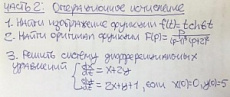 Часть 2: Операционное исчисление
1. Найти изображение функции f(t)= t ch 6t
2. Найти оригинал функции F(p)= p/(p-1)²(p+2)²
3. Решить систему дифференциальных
уравнений { dx/dt = x+2y
dy/dt = 2x+y+1, если x(0)=0, y(0)=5